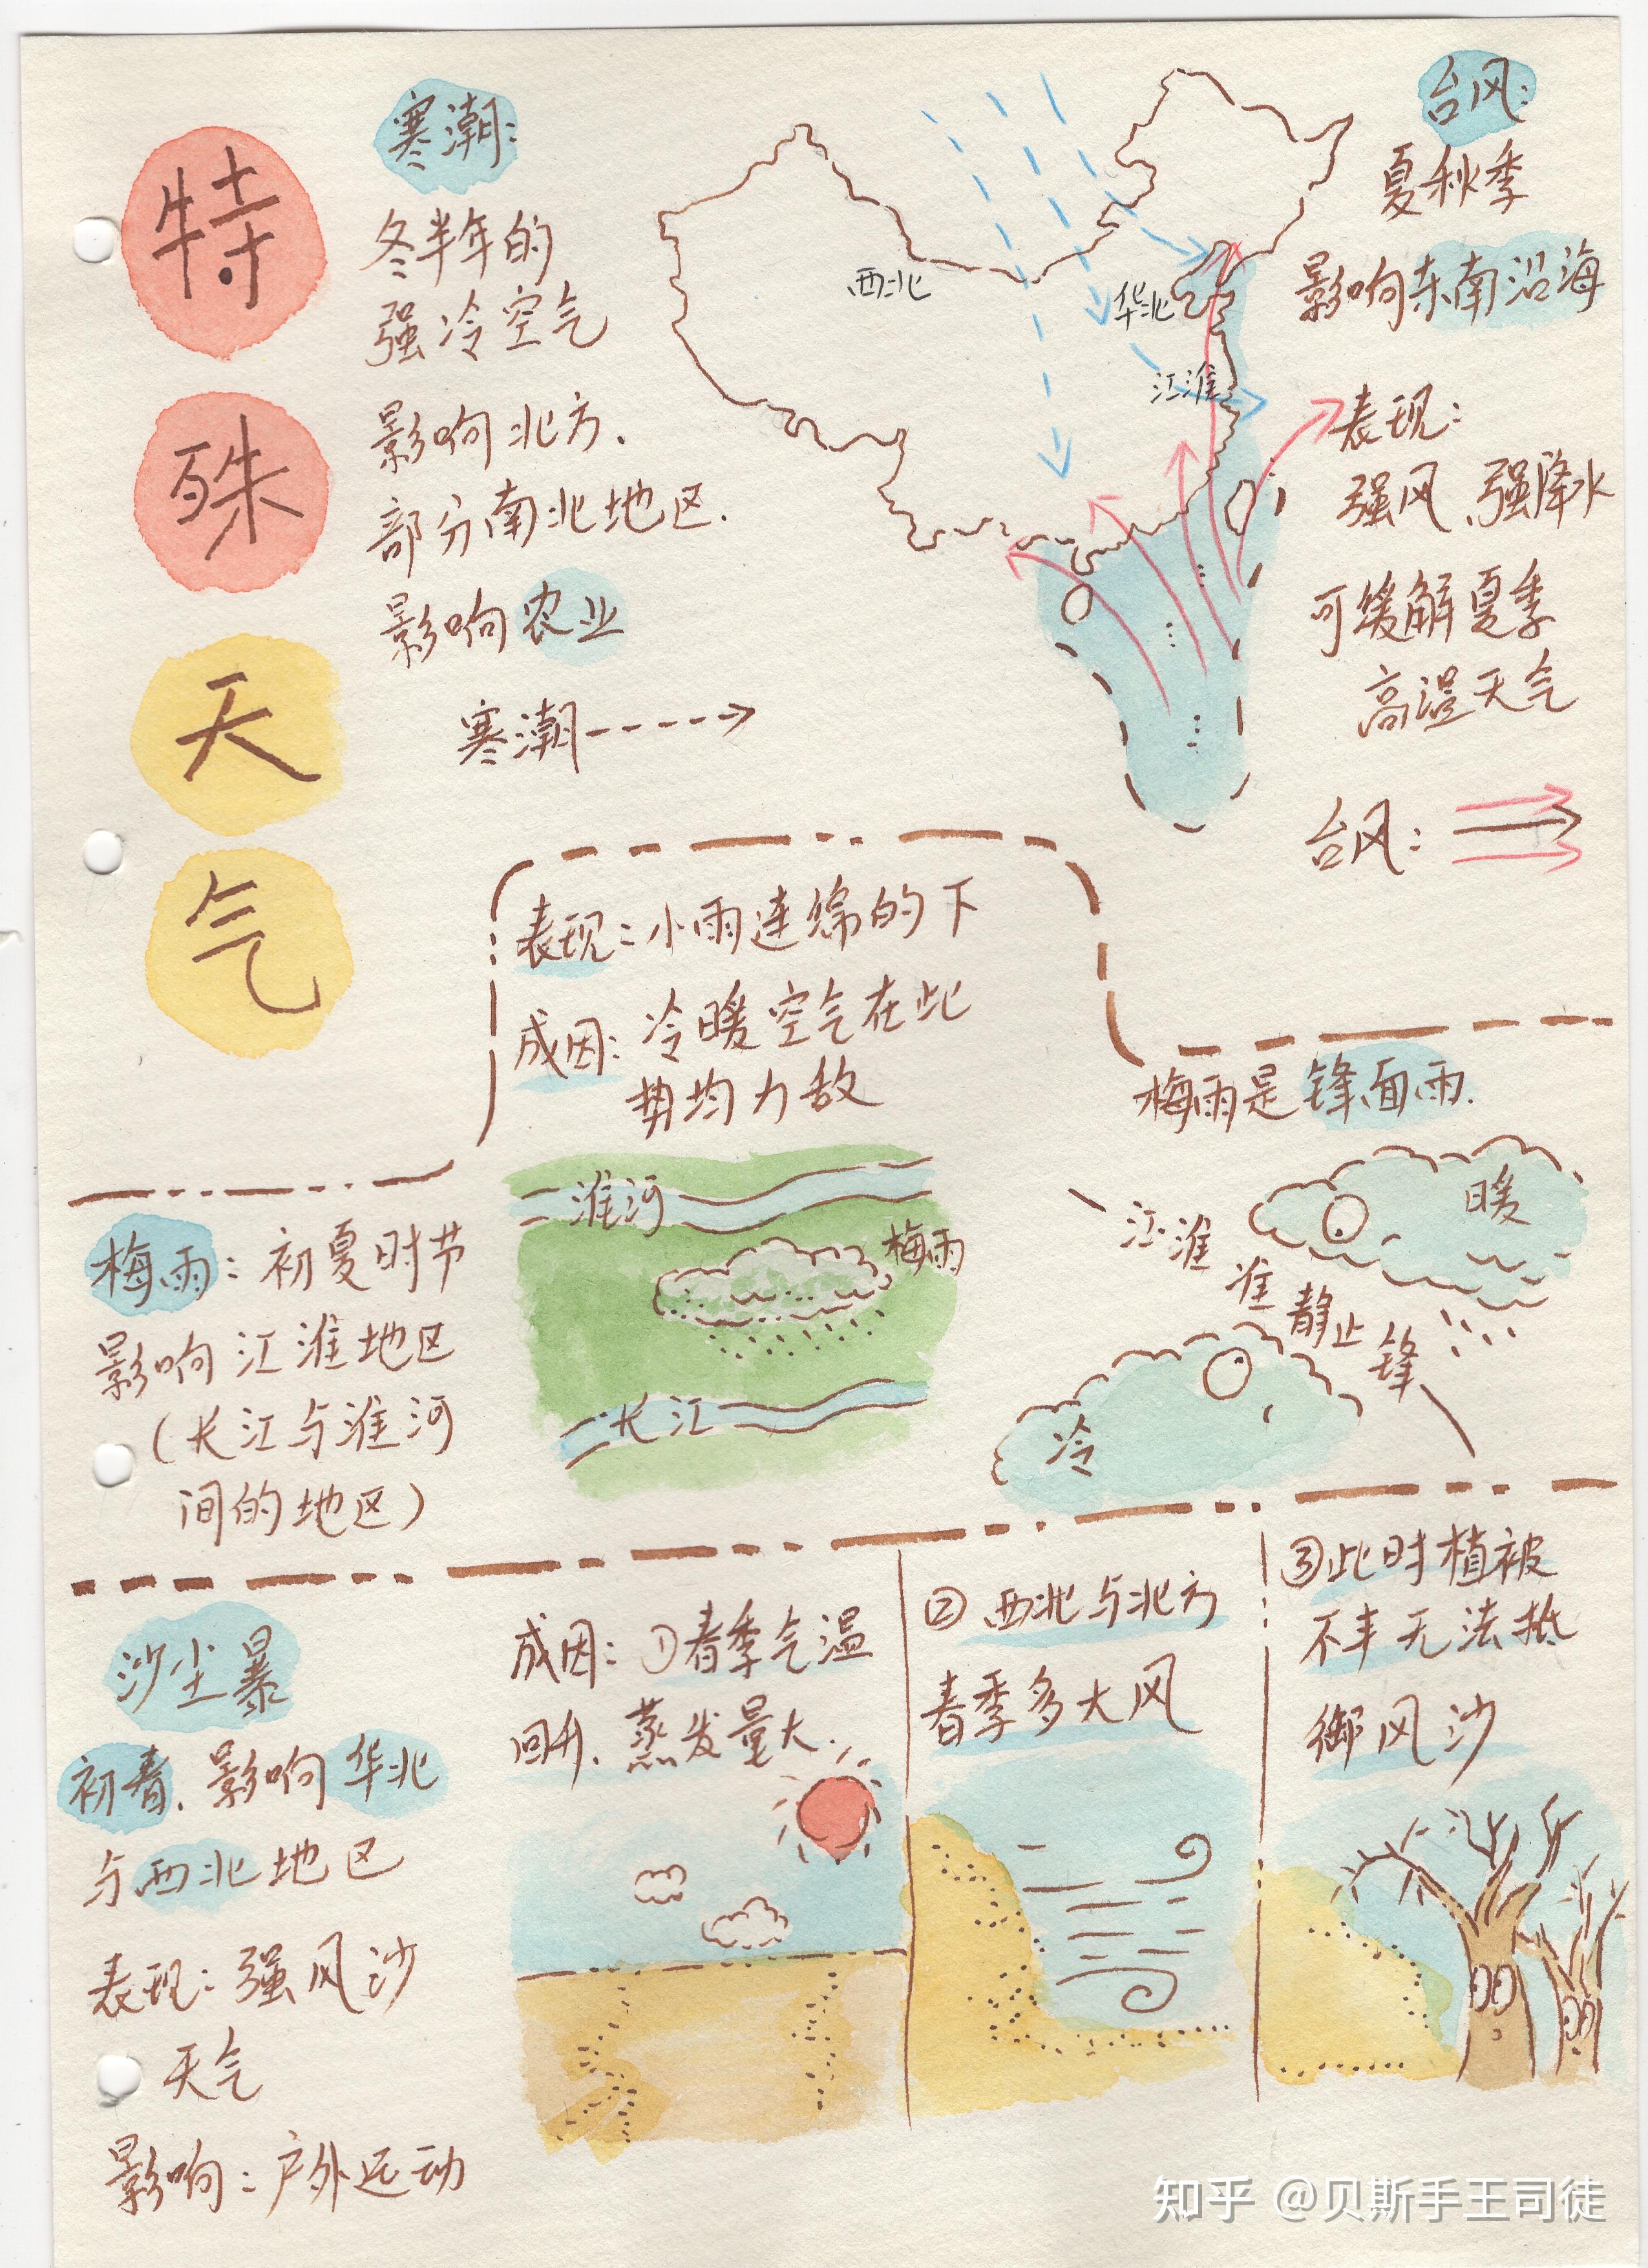 特
殊
天
气
寒潮:
冬半年的
强冷空气
影响北方.
部分南北地区.
影响农业
寒潮
西北
华北
江淮
台风:
夏秋季
影响东南沿海
表现:
强风、强降水
可缓解夏季
高温天气
台风:
表现:小雨连绵的下
成因:冷暖空气在此
势均力敌
梅雨:初夏时节
影响江淮地区
(长江与淮河
间的地区)
淮河
梅雨
长江
梅雨是锋面雨.
暖
江淮准静止锋
冷
沙尘暴
初春.影响华北
与西北地区
表现:强风沙
天气
影响:户外运动
成因:①春季气温
回升、蒸发量大.
②西北与北方
春季多大风
③此时植被
不丰无法抵
御风沙
知乎 @贝斯手王司徒